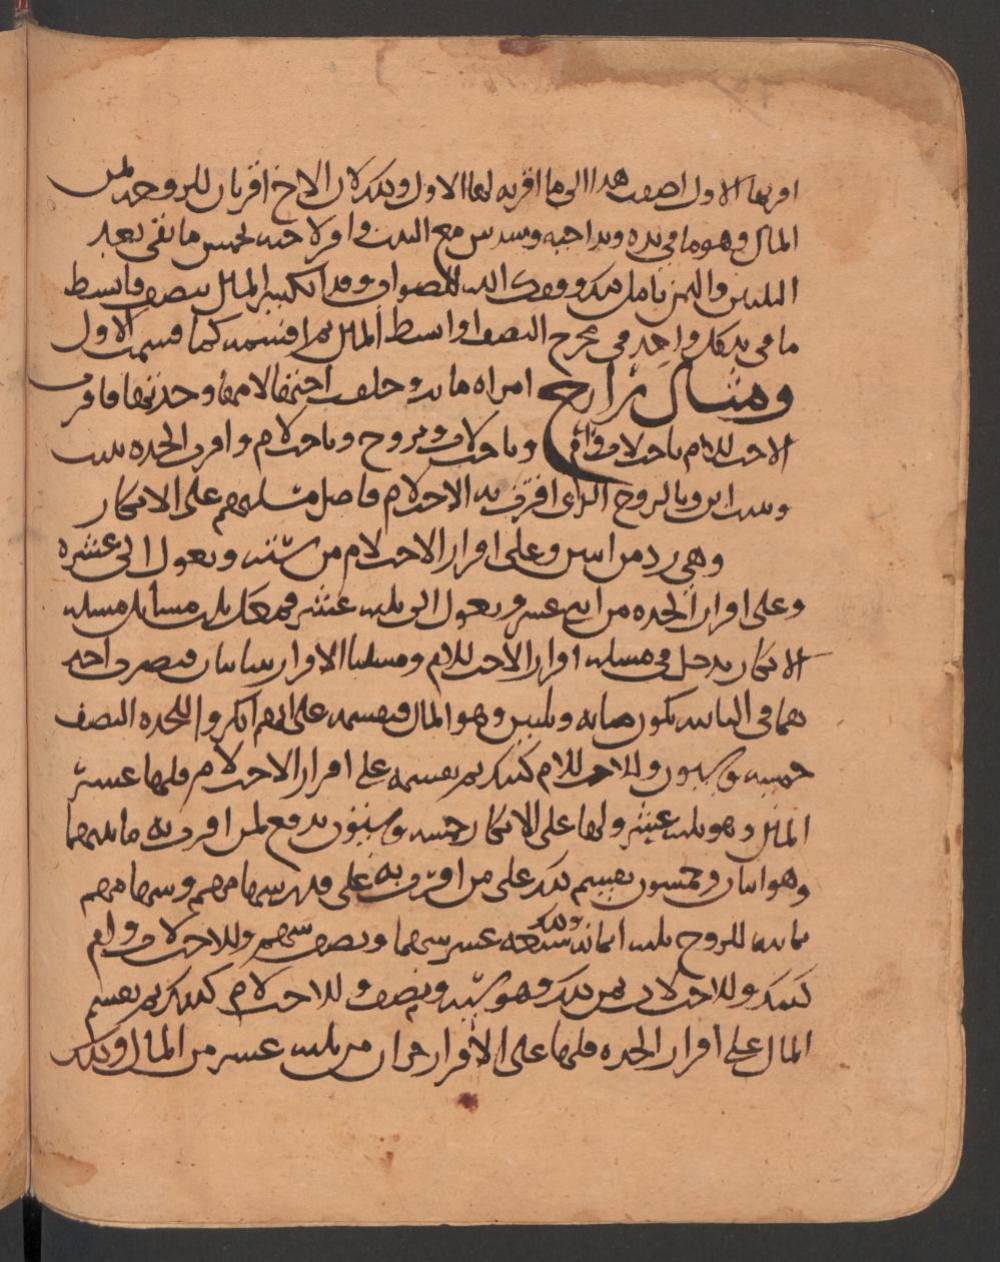 اقر بها الاول اضفت هذا الى ما اقر به لها الاول وذلك لان الاخ اقر بان للزوجه ثمن
المال وهو ما في يده ويد اخيه وسدس مع البنت واقر لاخيه بخمس ما بقى بعد
الثلثين والثمن تامل ذلك وفقك الله للصواب وقد انكسر المال بنصف فابسط
ما في يد كل واحد في مخرج النصف او ابسط المال ثم اقسمه كما قسمت الاول
ومثال رابع امراه ماتت وخلفت اختها لامها وجدتها فاقرت
الاخت للام باخت لاب وام وباخت لاب وبزوج وباخت لام واقرت الجده ببنت
وبنت ابن وبالزوج الذي اقرت به الاخت لام فاصل مسلتهم على الانكار
وهي رد من اثنين وعلى اقرار الاخت لام من سته وتعول الى عشره
وعلى اقرار الجده من اثني عشر وتعول الى ثلثه عشر فمعك ثلث مسايل مسله
الانكار تدخل في مسله اقرار الاخت للام ومسلتا الاقرار تباينان فتضرب احد
هما في الثانيه تكون مايه وثلثين وهو المال فتقسمه على انهم انكروا للجده النصف
خمسه وستون وللاخت للام كذلك ثم تقسمه على اقرار الاخت لام فلها عشر
المال وهو ثلثه عشر ولها على الانكار خمسه وستون تدفع لمن اقرت به ما بينهما
وهو اثنان وخمسون تقسم ذلك على من اقرت به على قدر سهامهم وسهامهم
ثمانيه للزوج ثلثه اثمان ذلك تسعه عشر سهما ونصف سهم وللاخت لاب وام
كذلك وللاخت لاب ثمن ذلك وهو سته ونصف وللاخت لام كذلك ثم تقسم
المال على اقرار الجده فلها على الاقرار جزان من ثلثه عشر من المال وذلك